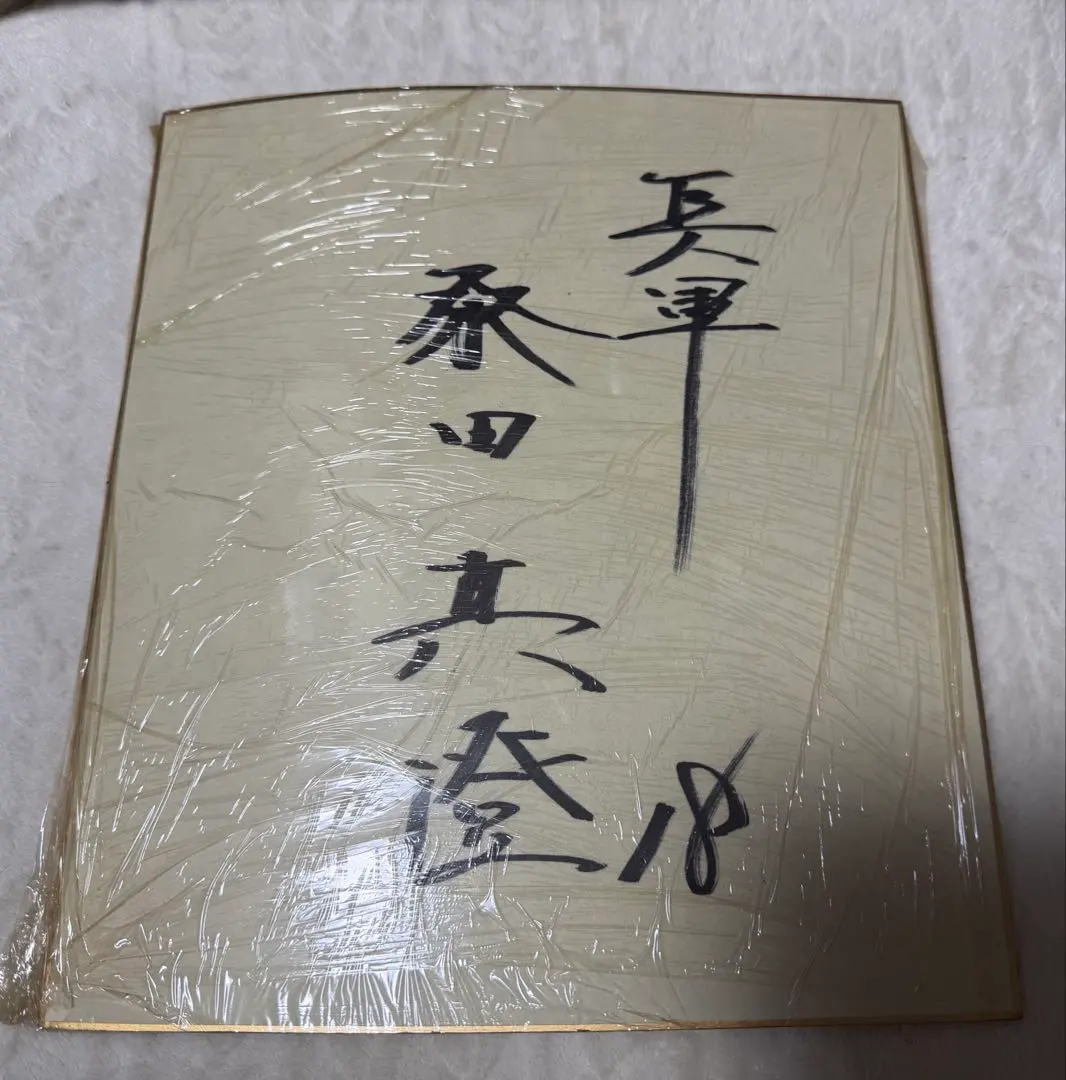 巨人軍
桑田真澄
18